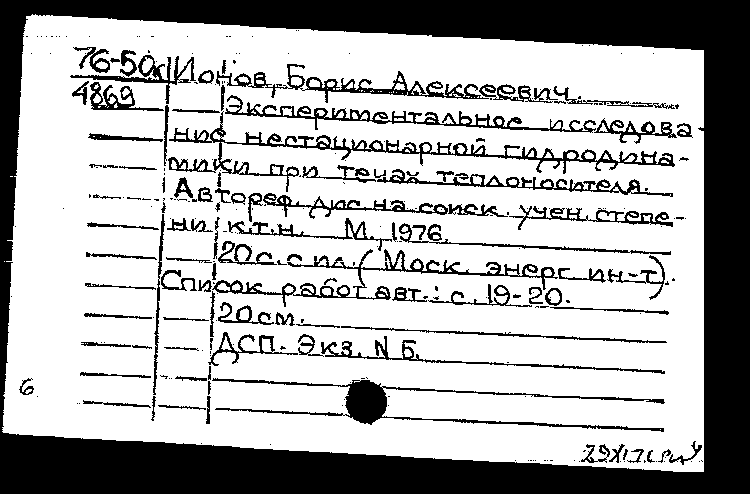 76-50к Ионов, Борис Алексеевич.
4869
Экспериментальное исследова-
ние нестационарной гидродина-
мики при течах теплоносителя.
Автореф. дис. на соиск. учен. степе-
ни к.т.н. М., 1976.
20 с. с ил. (Моск. энерг. ин-т).
Список работ авт.: с. 19-20.
20 см.
ДСП. Экз. N Б.
6